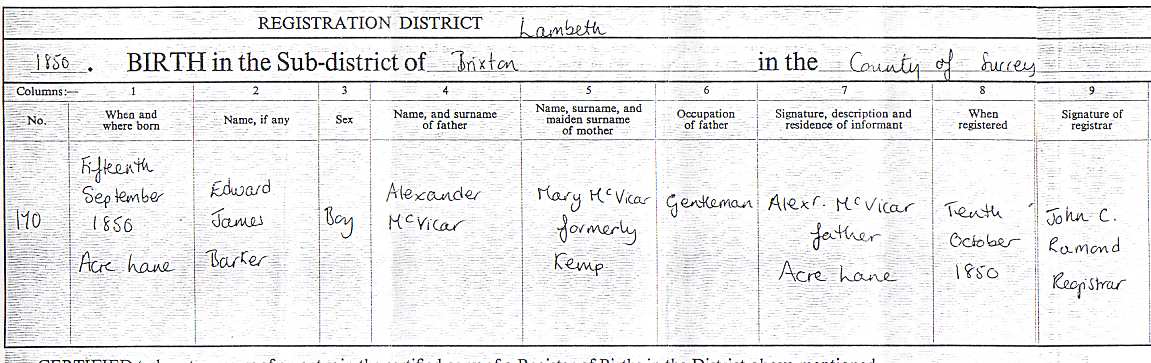 REGISTRATION DISTRICT Lambeth
1850. BIRTH in the Sub-district of Brixton in the County of Surrey
Columns:— 1 2 3 4 5 6 7 8 9
No. When and where born Name, if any Sex Name, and surname of father Name, surname, and maiden surname of mother Occupation of father Signature, description and residence of informant When registered Signature of registrar
170
Fifteenth
September
1850
Acre Lane
Edward
James
Barker
Boy
Alexander
McVicar
Mary McVicar
formerly
Kemp
Gentleman
Alexr. McVicar
father
Acre Lane
Tenth
October
1850
John C.
Ramond
Registrar